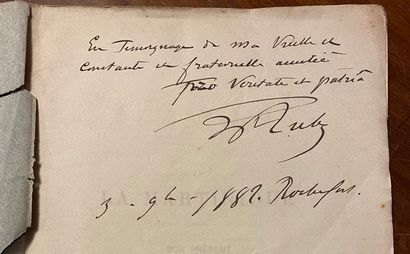 En Témoignage de ma Vieille et
constante et fraternelle amitié
pro Veritate et patriâ
3 - 9b - 1882. Rochefort.
SON PRÉSENT